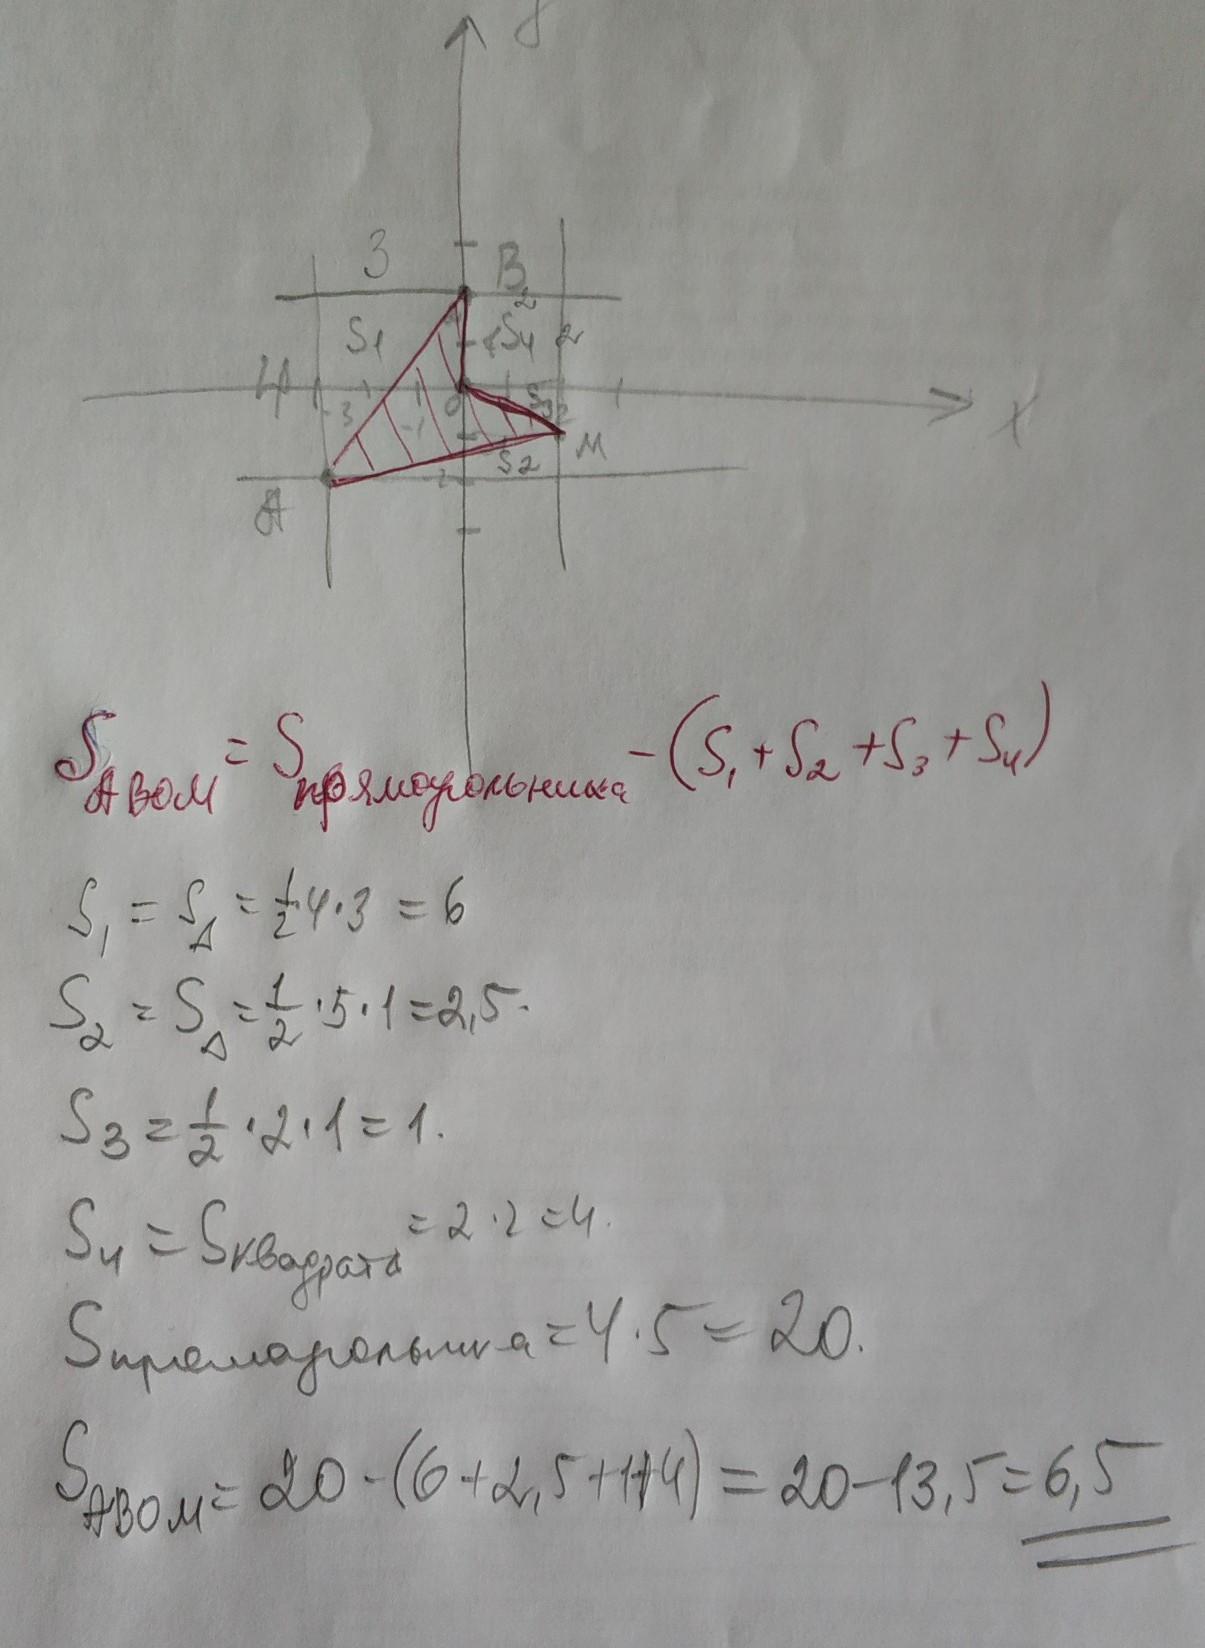 y
3 B
S1 2 S4 2
4
-3 -1 0 S3 2
M
S2
A -2
x
S АВОМ = S прямоугольника - (S1 + S2 + S3 + S4)
S1 = S△ = 1/2 · 4 · 3 = 6
S2 = S△ = 1/2 · 5 · 1 = 2,5.
S3 = 1/2 · 2 · 1 = 1.
S4 = S квадрата = 2 · 2 = 4.
S прямоугольника = 4 · 5 = 20.
S АВОМ = 20 - (6 + 2,5 + 1 + 4) = 20 - 13,5 = 6,5